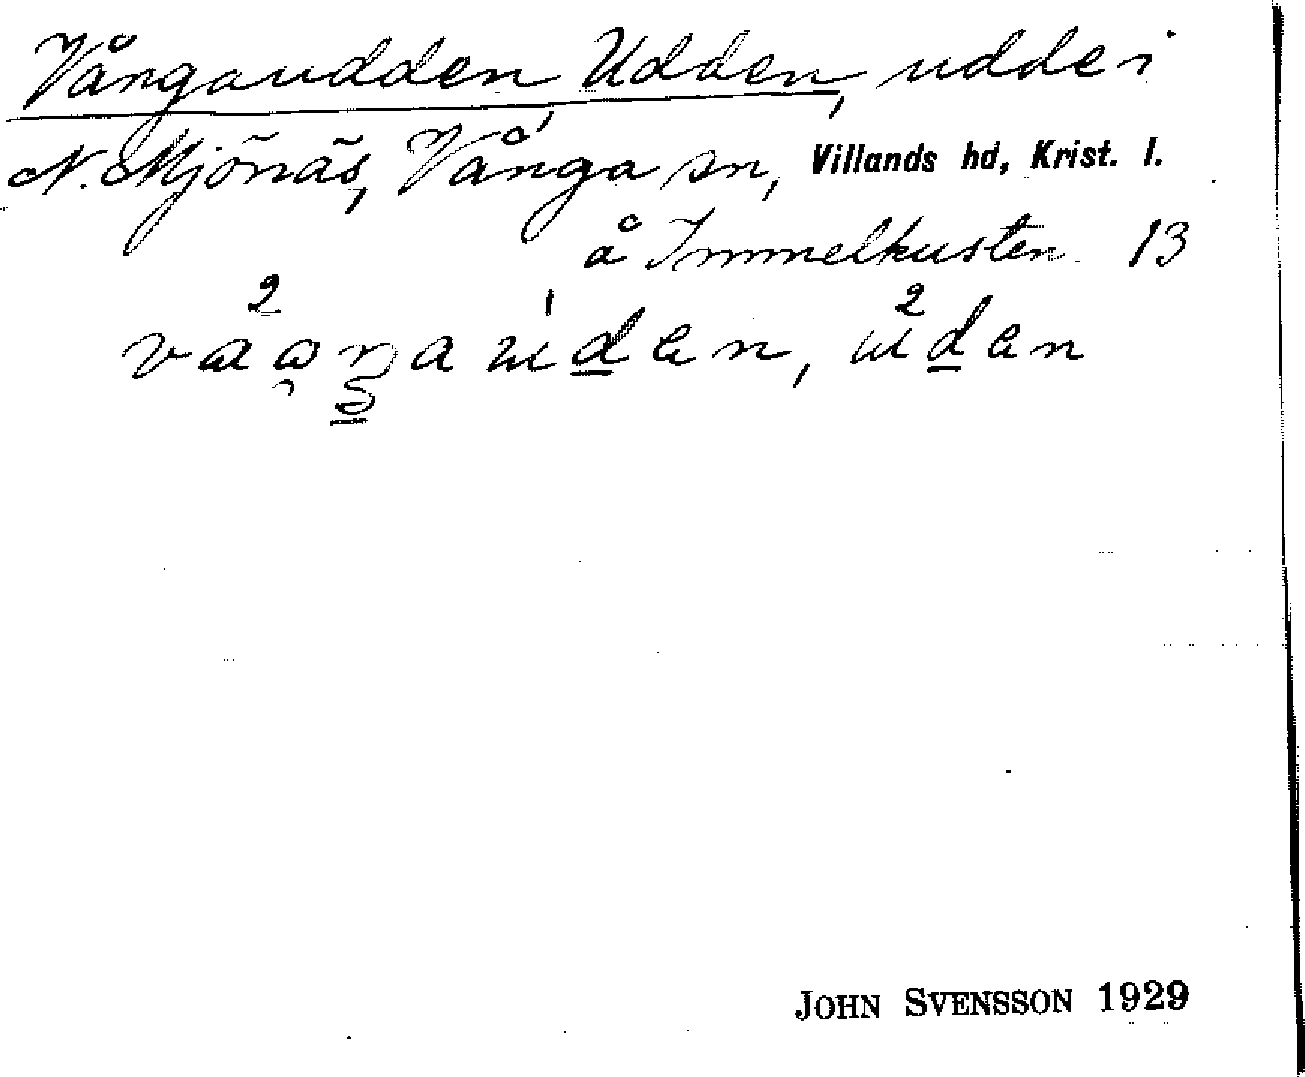 Vångaudden, Udden, udde i
N. Mjönäs, Vånga sn, Villands hd, Krist. l.
å Immelkusten 13
JOHN SVENSSON 1929